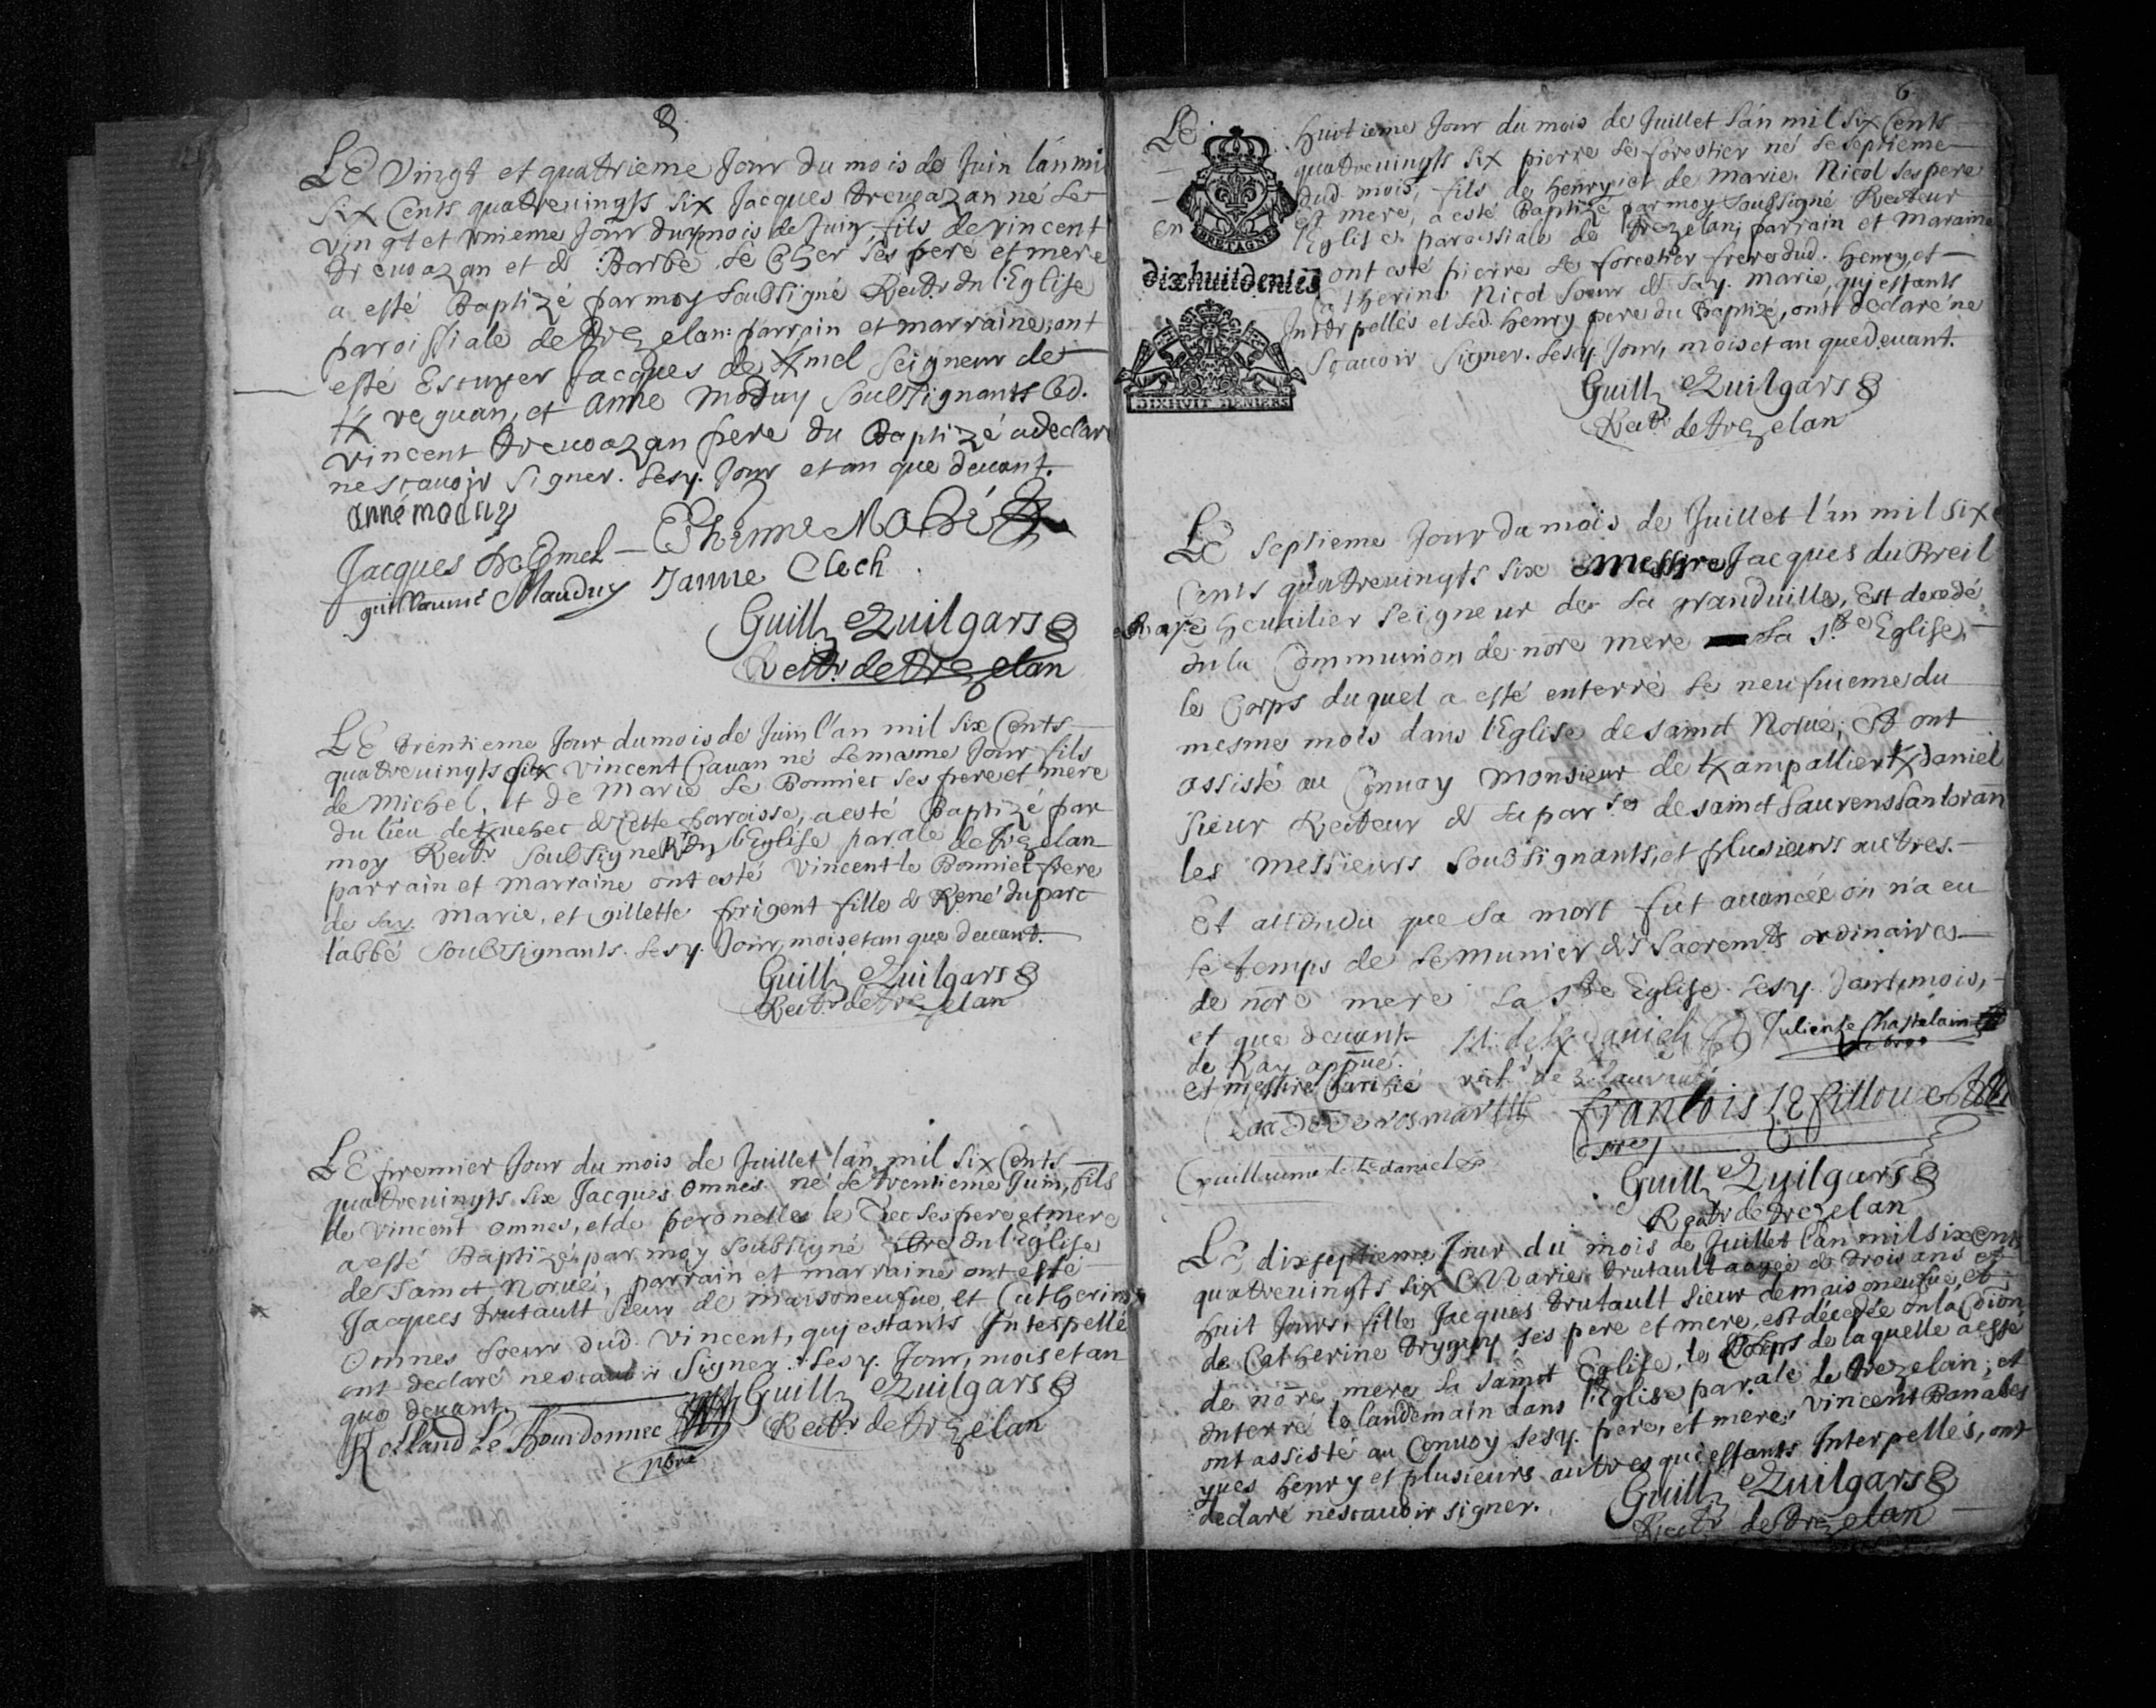 8
LE vingt et quatrieme Jour du mois de Juin l'an mil
six Cents quatreuingts six Jacques treuoazan né le
vingt et vnieme Jour dud mois de Juin, fils de vincent
treuoazan et de Barbe Le Cher ses pere et mere
a esté Baptizé par moy soubsigné Rectr en l'Eglise
paroissiale de trezelan: parrain et marraine, ont
esté Escuyer Jacques de Kmel Seigneur de
K veguan, et Anne Moduy soubsignants led.
vincent treuoazan pere du Baptizé a declaré
ne scauoir signer. Lesy. Jour et an que deuant.
anné moduy
Jacques de Kmel
guillaume Mauduy Janne Clech
Guill Quilgars
Rectr de trezelan
LE trentieme Jour du mois de Juin l'an mil six Cents
quatreuingts six vincent Cauan né le mesme Jour fils
de Michel, et de Marie Le Bonniec ses pere et mere
du lieu de Kuehec de cette paroisse, a esté Baptizé par
moy Rectr soubsigné en l'Eglise par.ale de trezelan
parrain et marraine ont esté vincent le Bonniec frere
de lay. Marie, et gillette prigent fille de René du parc
l'abbé soubsignants. Lesy. Jour, mois et an que deuant.
Guill Quilgars
Rectr de trezelan
LE premier Jour du mois de Juillet l'an mil six Cents
quatreuingts six Jacques omnes né le trentieme Juin, fils
de vincent omnes, et de peronelle le Tiec ses pere et mere
a esté Baptizé, par moy soubsigné pbre en l'Eglise
de Sainct Norué, parrain et marraine ont esté
Jacques trutault sieur de maisoneufue, et Catherine
Omnes soeur dud. vincent, qui estants Interpellé
ont declaré ne scauoir signer. Lesy. Jour, mois et an
que deuant.
Guill Quilgars
Rectr de trezelan
Rolland Le Bourdonnec
pbre
6
LE huitieme Jour du mois de Juillet l'an mil six Cents
quatreuingts six pierre le forestier né le septieme
dud. mois, fils de henry et de Marie Nicol ses pere
et mere, a esté Baptizé par moy soubsigné Recteur
en l'Eglise paroissiale de trezelan, parrain et Maraine
ont esté pierre le forestier frere dud. henry, et
Catherine Nicol soeur de lay. Marie, qui estants
Interpellés et led. henry pere du Baptizé, ont declaré ne
scauoir signer. Lesy. Jour, mois et an que deuant.
BRETAGNE
dixhuit deniers
DIXHUIT DENIERS
Guill Quilgars
Rectr de trezelan
LE septieme Jour du mois de Juillet l'an mil six
Cents quatreuingts six Messire Jacques du Breil
cheuailier seigneur de la granduille, Est decedé
en la Communion de nôre mere la Ste Eglise,
le Corps duquel a esté enterré le neufuieme du
mesme mois dans l'Eglise de sainct Norué; Et ont
assisté au Conuoy monsieur de Kampallier Kdaniel
sieur Recteur de la par.se de sainct Laurens Lantoran
les messieurs soubsignants, et plusieurs autres.
Et attendu que sa mort fut auancée on n'a eu
le temps de le munier des Sacremts ordinaires
de nôre mere la Ste Eglise. Lesy. Jour, mois,
et que deuant.
de Ray appué.
et messire
Julien le Chastelain
francois le filloux
Guillaume de Kdaniel
Guill Quilgars
Rectr de trezelan
LE dixseptieme Jour du mois de Juillet l'an mil six Cents
quatreuingts six Marie trutault aagee de trois ans et
huit Jours, fille Jacques trutault sieur de maisoneufue, et
de Catherine trygny ses pere et mere, est décedée en la Cöion
de nôre mere la sainct Eglise, le Corps de laquelle a esté
enterré le landemain dans l'Eglise par.ale de trezelan; et
ont assisté au Conuoy lesy. pere, et mere, vincent Banales
yues henry et plusieurs autres qui estants Interpellés, ont
declaré ne scauoir signer.
Guill Quilgars
Rectr de trezelan